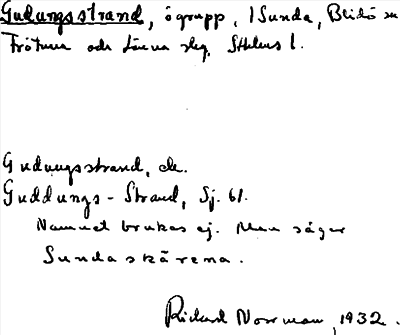 Gudungsstrand, ögrupp, i Sunda, Blidö sn
Frötuna och Länna slg. Sthlms l.
Gudungsstrand, ek.
Guddungs-Strand, Sj. 61.
Namnet brukas ej. Man säger
Sundaskärena.
Rickard Norrman, 1932.